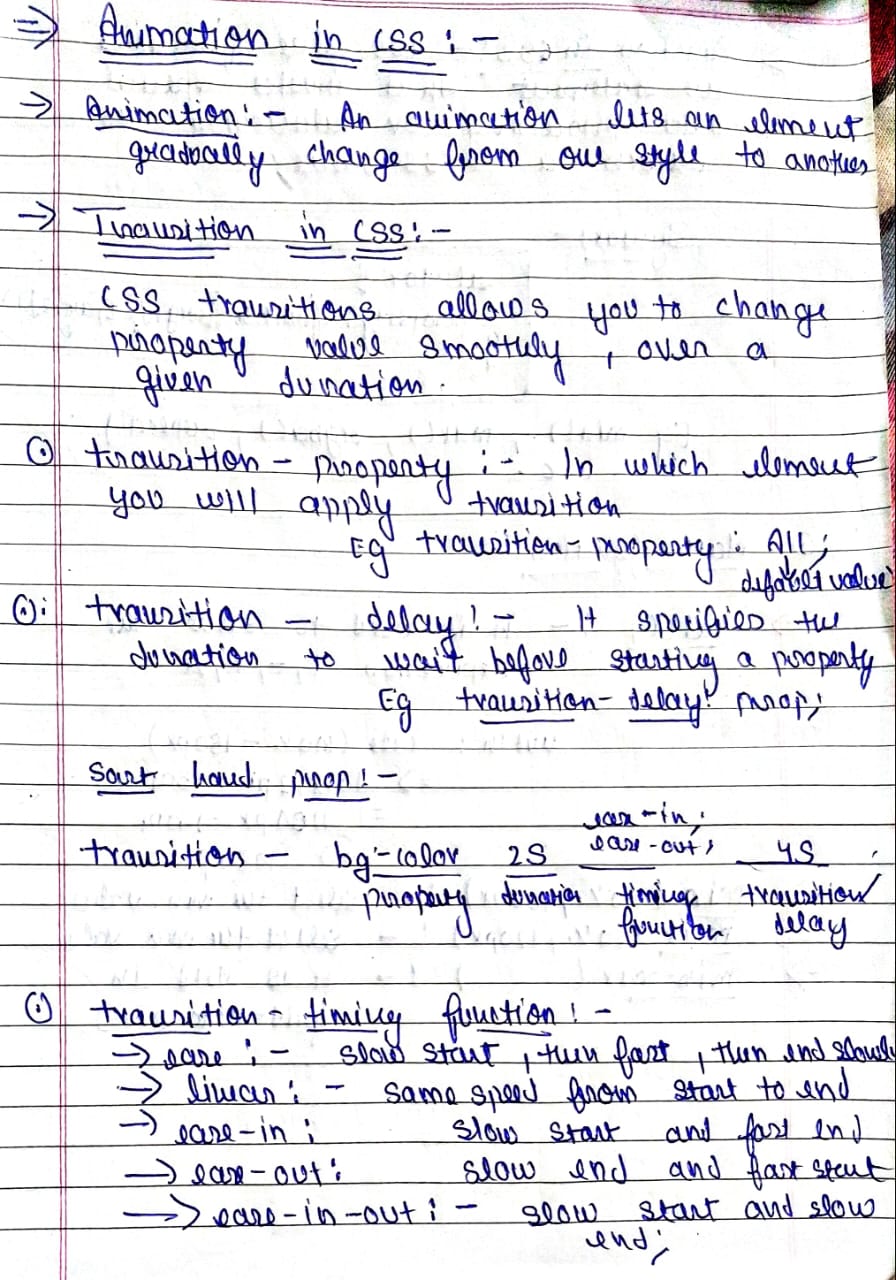 ⇒ Animation in CSS :-
→ Animation :- An animation lets an element
gradually change from one style to another
→ Transition in CSS :-
CSS transitions allows you to change
property value smoothly , over a
given duration.
transition - property :- In which element
you will apply transition
Eg transition - property : All ;
default value
transition - delay :- It specifies the
duration to wait before starting a property
Eg transition - delay : prop;
Sort hand prop :-
ease-in,
transition - bg-color 2S ease-out, 4S
property duration timing transition
function delay
transition - timing function :-
→ ease :- slow start , then fast , then end slowly
→ linear :- same speed from start to end
→ ease-in : slow start and fast end
→ ease-out : slow end and fast start
→ ease-in-out :- slow start and slow
end;